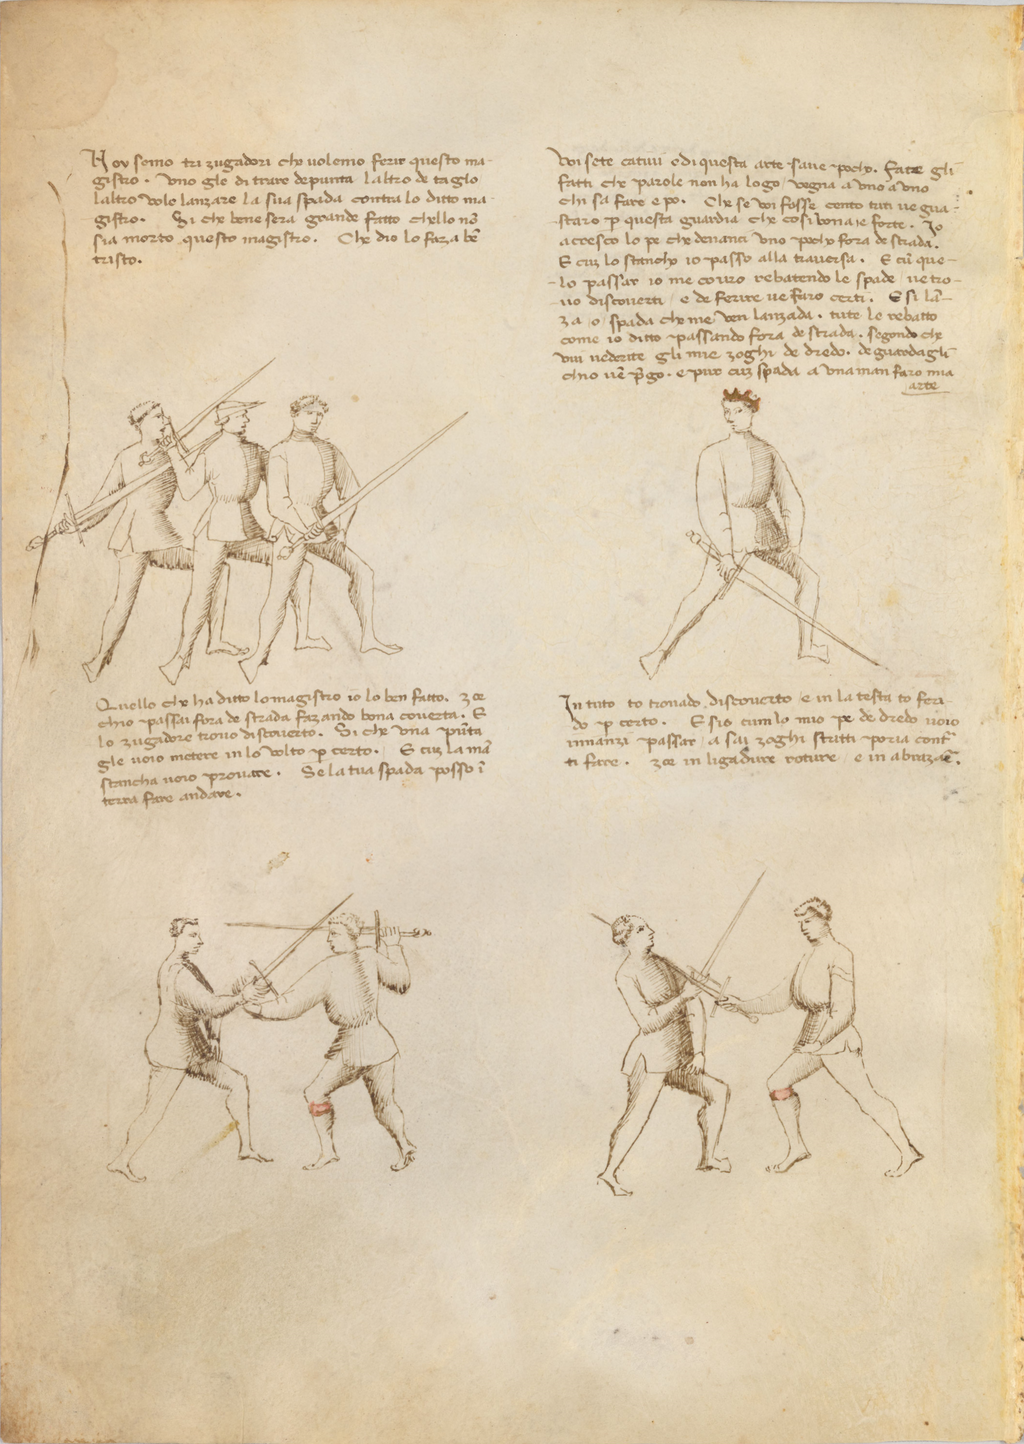 Noy semo tri zugadori che volemo ferir questo ma-
gistro. Uno gle di trare de punta l altro de taglo
l altro vole lanzare la sua spada contra lo ditto ma-
gistro. Si che bene sera grande fatto ch ello nō
sia morto questo magistro. Che dio lo faza bē
tristo.
Voi sete cativi e di questa arte save pocho. Fate gli
fatti che parole non ha logo, vegna a uno a uno
chi sa fare e po. Che se voi fosse cento tuti ve gua-
staro p questa guardia che cosi bona e forte. Io
acresco lo pe che denanci uno pocho fora de strada.
E cum lo stancho io passo alla traversa. E cū que-
-lo passar io me covro rebatendo le spade ve tro-
-vo discoverti e de ferire ve faro certi. E si lā-
za o spada che me ven lanzada. tute le rebatto
come io ditto passando fora de strada. segondo che
vuii vederite gli mie zoghi de dredo. de guardagli
ch io vē p̄go. e pur cum spada a una man faro mia
arte
Quello che ha ditto lo magistro io lo ben fatto. zoe
ch io passai fora de strada fazando bona coverta. E
lo zugadore trovo discoverto. Si che una pūta
gle voio metere in lo volto p certo. E cum la mā
stancha voio provare. Se la tua spada posso ī
terra fare andare.
In tuto to trovado discoverto e in la testa to feri-
do p certo. E s io cum lo mio pe de dredo voio
innanzi passar, assai zoghi stritti poria cont̄
ti fare. zoe in ligadure roture e in abrazaē.